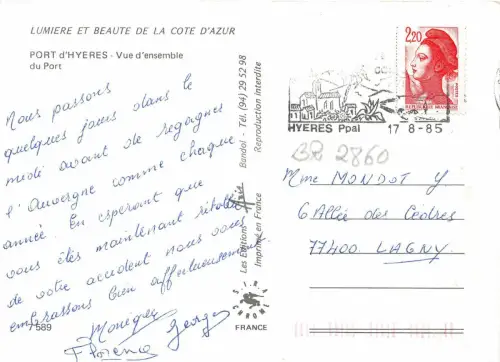 LUMIERE ET BEAUTE DE LA COTE D'AZUR
PORT d'HYERES - Vue d'ensemble
du Port
Nous passons
quelques jours dans le
midi avant de regagner
l'Auvergne comme chaque
année. En espérant que
vous êtes maintenant rétablie
de votre accident nous vous
embrassons bien affectueusement
Monique Georges
Florence
7589
Les Editions
Bandol - Tél. (94) 29 52 98
Imprimé en France
Reproduction Interdite
FRANCE
2,20
HYERES Ppal 17 8-85
BR 2860
Mme MONDOT Y
6 Allée des Cèdres
77400 LAGNY